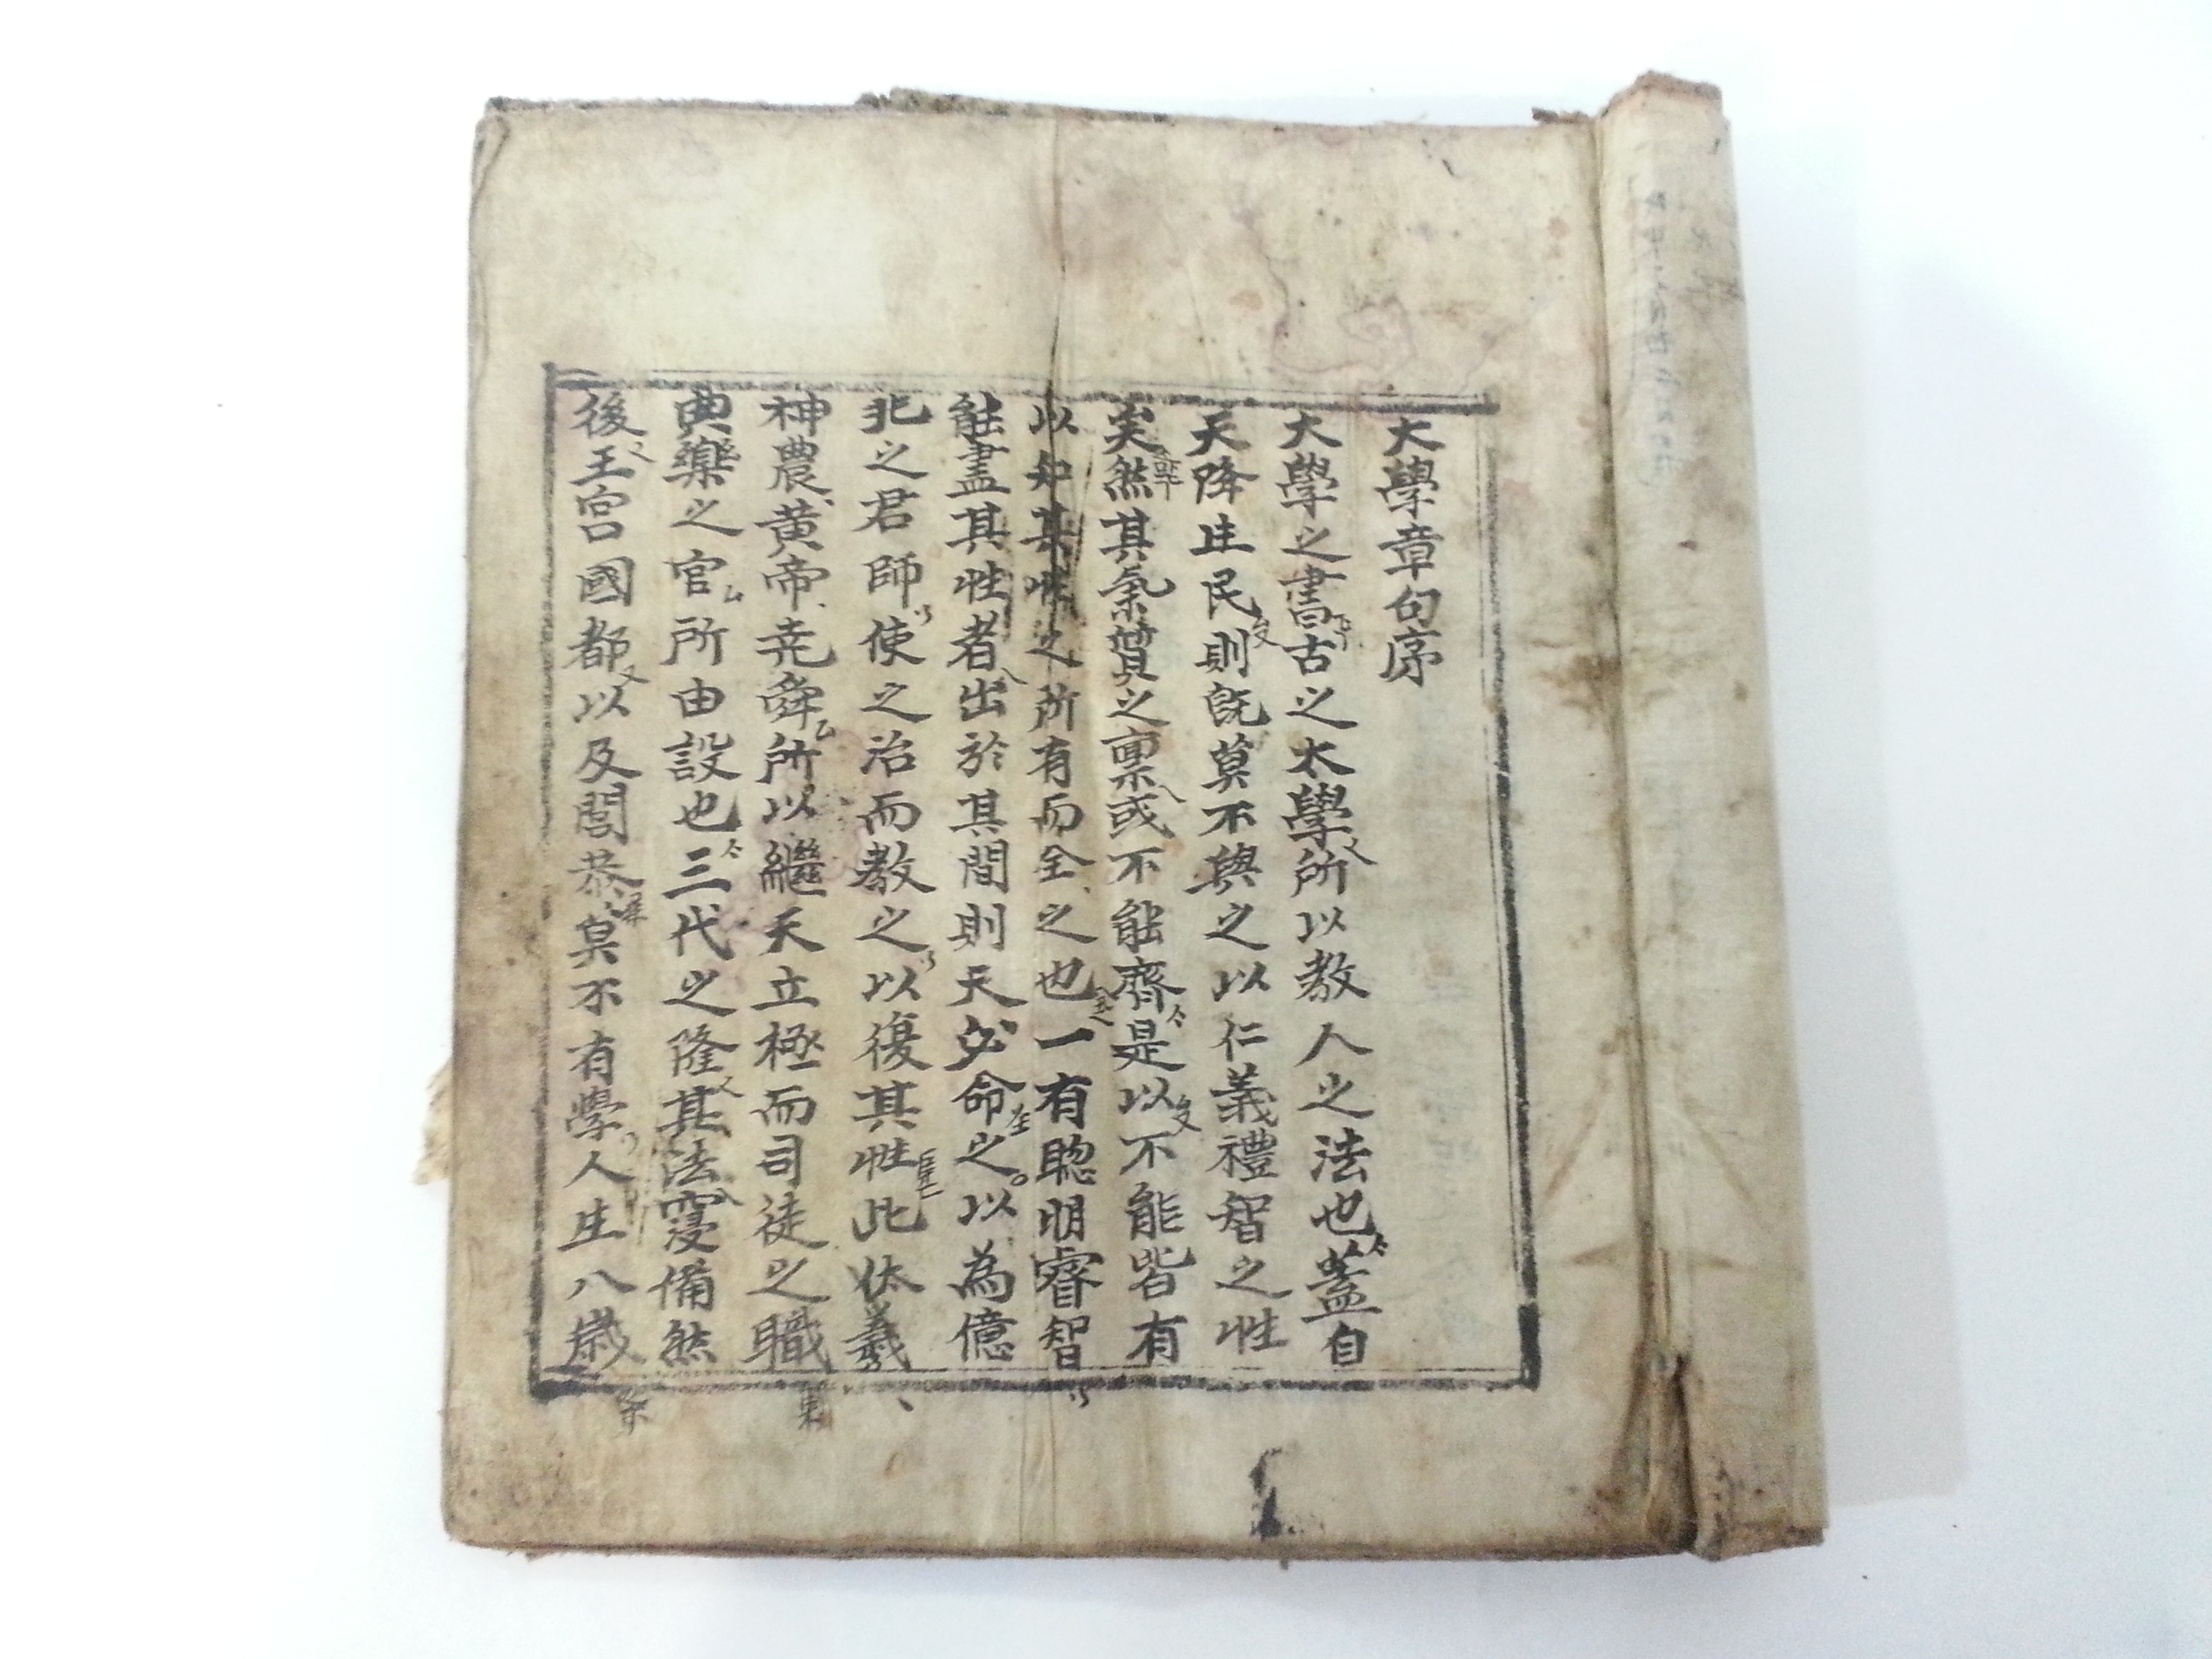 大學章句序
大學之書古之太學所以教人之法也蓋自
天降生民則旣莫不與之以仁義禮智之性
矣然其氣質之禀或不能齊是以不能皆有
以知其性之所有而全之也一有聡明睿智
能盡其性者出於其間則天必命之以為億
兆之君師使之治而教之以復其性此伏羲
神農黄帝尭舜所以繼天立極而司徒之職
典樂之官所由設也三代之隆其法寖備然
後王宮國都以及閭巷莫不有學人生八歳